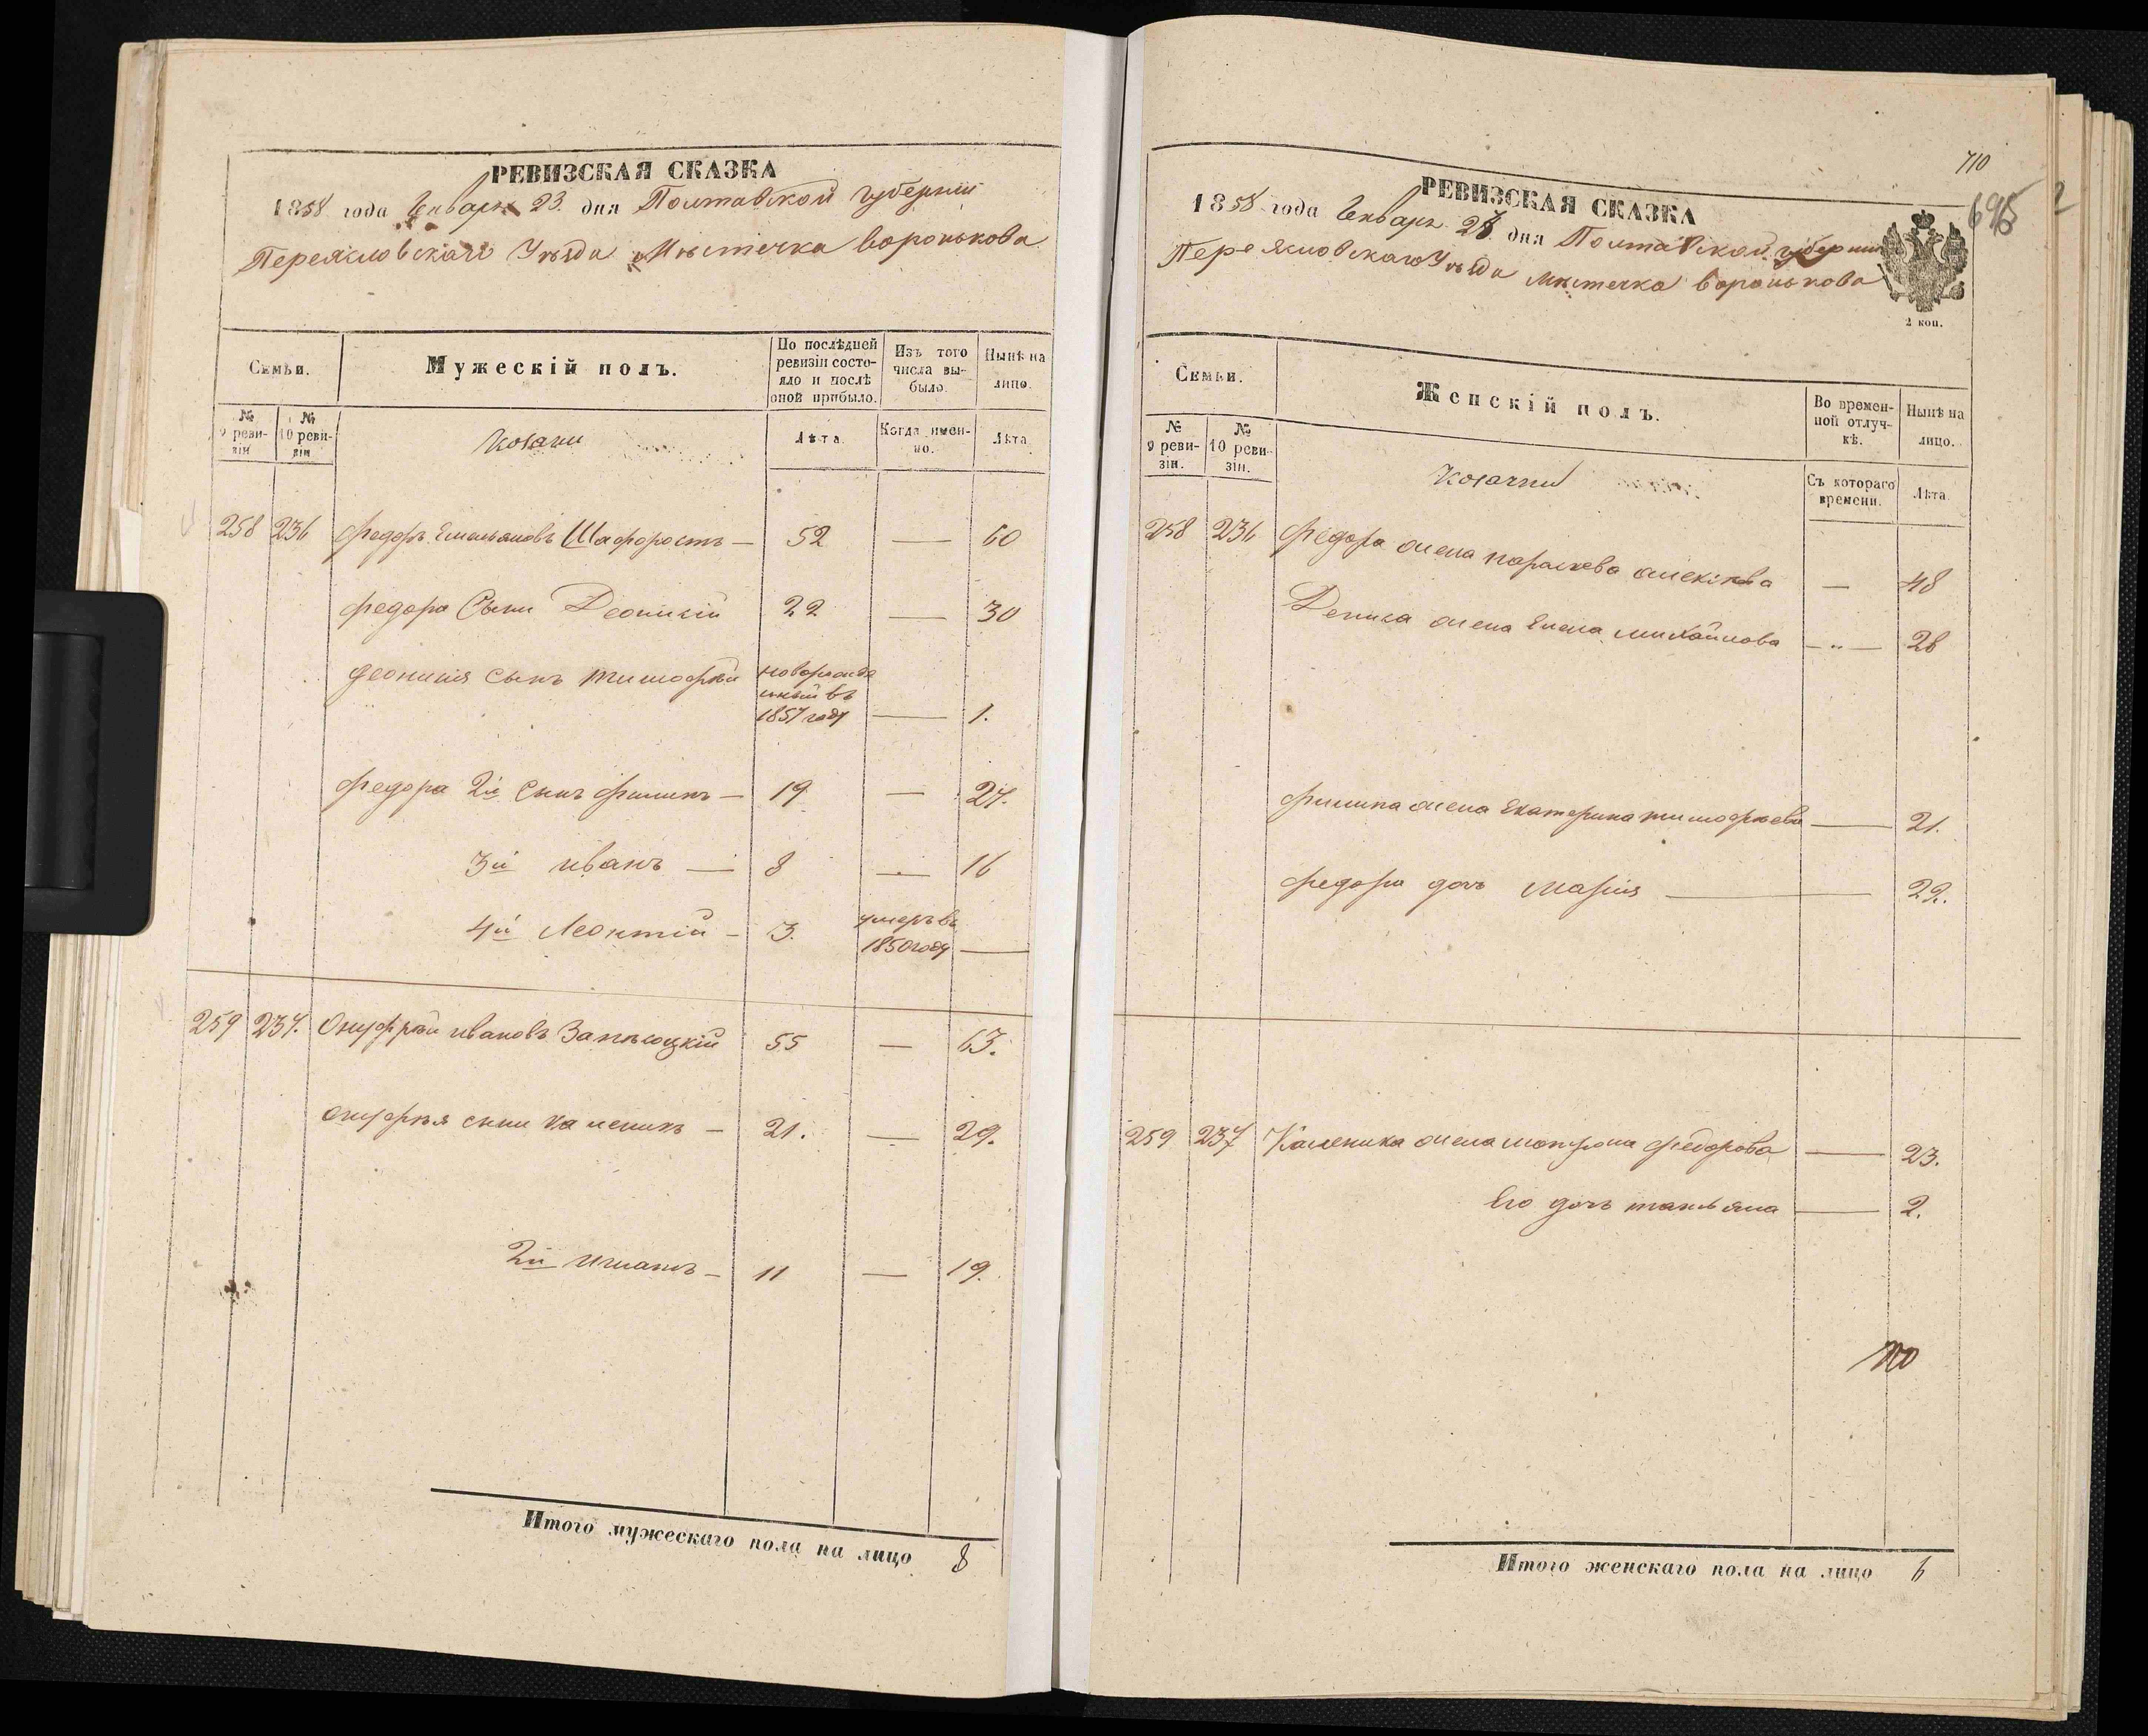 РЕВИЗСКАЯ СКАЗКА
1858 года Генваря 23 дня Полтавской губернии
Переяславскаго Уезда Местечка Воронькова
Семьи.
Мужескій полъ.
По послѣдней ревизіи состояло и послѣ оной прибыло.
Изъ того числа выбыло.
Нынѣ на лицо.
№ 9 ревизіи
№ 10 ревизіи
Козаки
Лѣта.
Когда именно.
Лѣта.
258 236 Федоръ Емельяновъ Шафоростъ — 52 — 60
Федора Сынъ Деонисій 22 — 30
Деонисія Сынъ Тимофѣй новорожденный въ 1857 году — 1.
Федора 2й Сынъ Филипъ — 19 — 27.
3й Иванъ — 8 — 16
4й Леонтій — 3. умеръ въ 1850 году —
259 237. Онуфрѣй Ивановъ 55 — 63.
Онуфрѣя сынъ Каленикъ — 21. — 29.
2й Игнатъ — 11 — 19.
Итого мужескаго пола на лицо 8
710
695
2
РЕВИЗСКАЯ СКАЗКА
1858 года Генваря 23 дня Полтавской губернии
Переяславскаго Уезда Местечка Воронькова
2 коп.
Семьи.
Женскій полъ.
Во временной отлучкѣ.
Нынѣ на лицо.
№ 9 ревизіи.
№ 10 ревизіи.
Козачки
Съ котораго времени.
Лѣта.
258 236 Федора жена Параскева Алексѣева — 48
Дениса жена Елена Михайлова — " — 28
Филипа жена Екатерина Тимофѣева — 21.
Федора дочь Марія — 22.
259 237 Каленика жена Матрона Федорова — 23.
Его дочь Татьяна — 2.
710
Итого женскаго пола на лицо 6